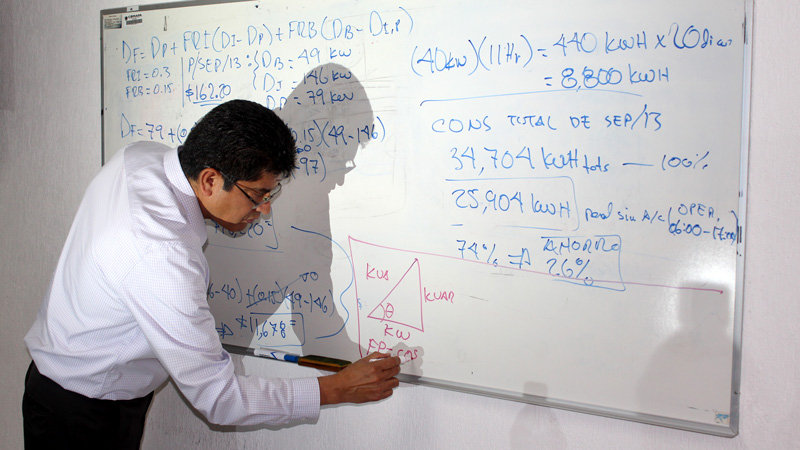 DF = DP + FRI (DI - DP) + FRB (DB - DI,P)
FRI = 0.3
FRB = 0.15
P/SEP/13:
$162.20
DB = 49 KW
DI = 146 KW
DP = 79 KW
DF = 79 + (0.
0.15)(49-146)
97)
-40) + (0.15)(49-146)
⇒ $11,678=
(40KW)(11Hr) = 440 KWH x 20
= 8,800 KWH
CONS TOTAL DE SEP/13
34,704 KWH tots — 100%
25,904 KWH sin A/C (OPER.
06:00-17:00)
74% ⇒ AHORRO
26%
KVA
KVAR
θ
KW
FP = cos